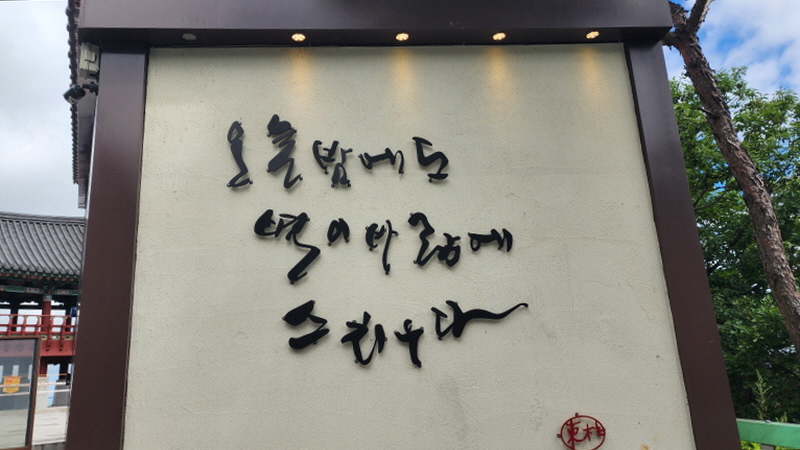 오늘 밤에도
별이 바람에
스치운다
東柱